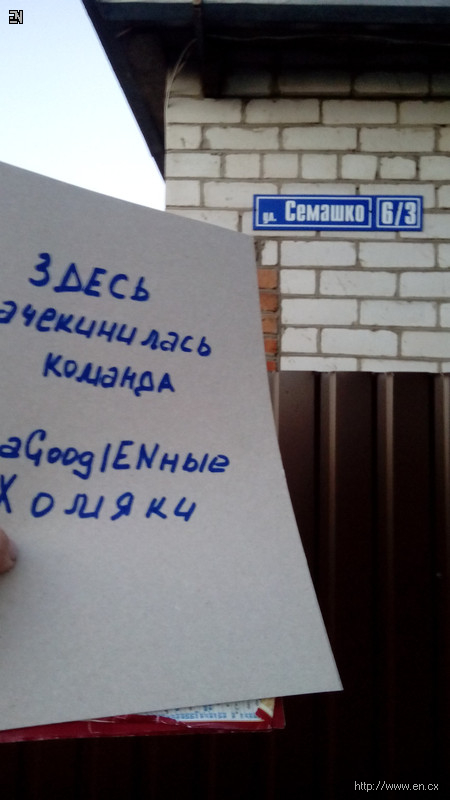 EN
ул. Семашко 6/3
ЗДЕСЬ
ачекинилась
команда
аGooglENные
Хомяки
http://www.en.cx